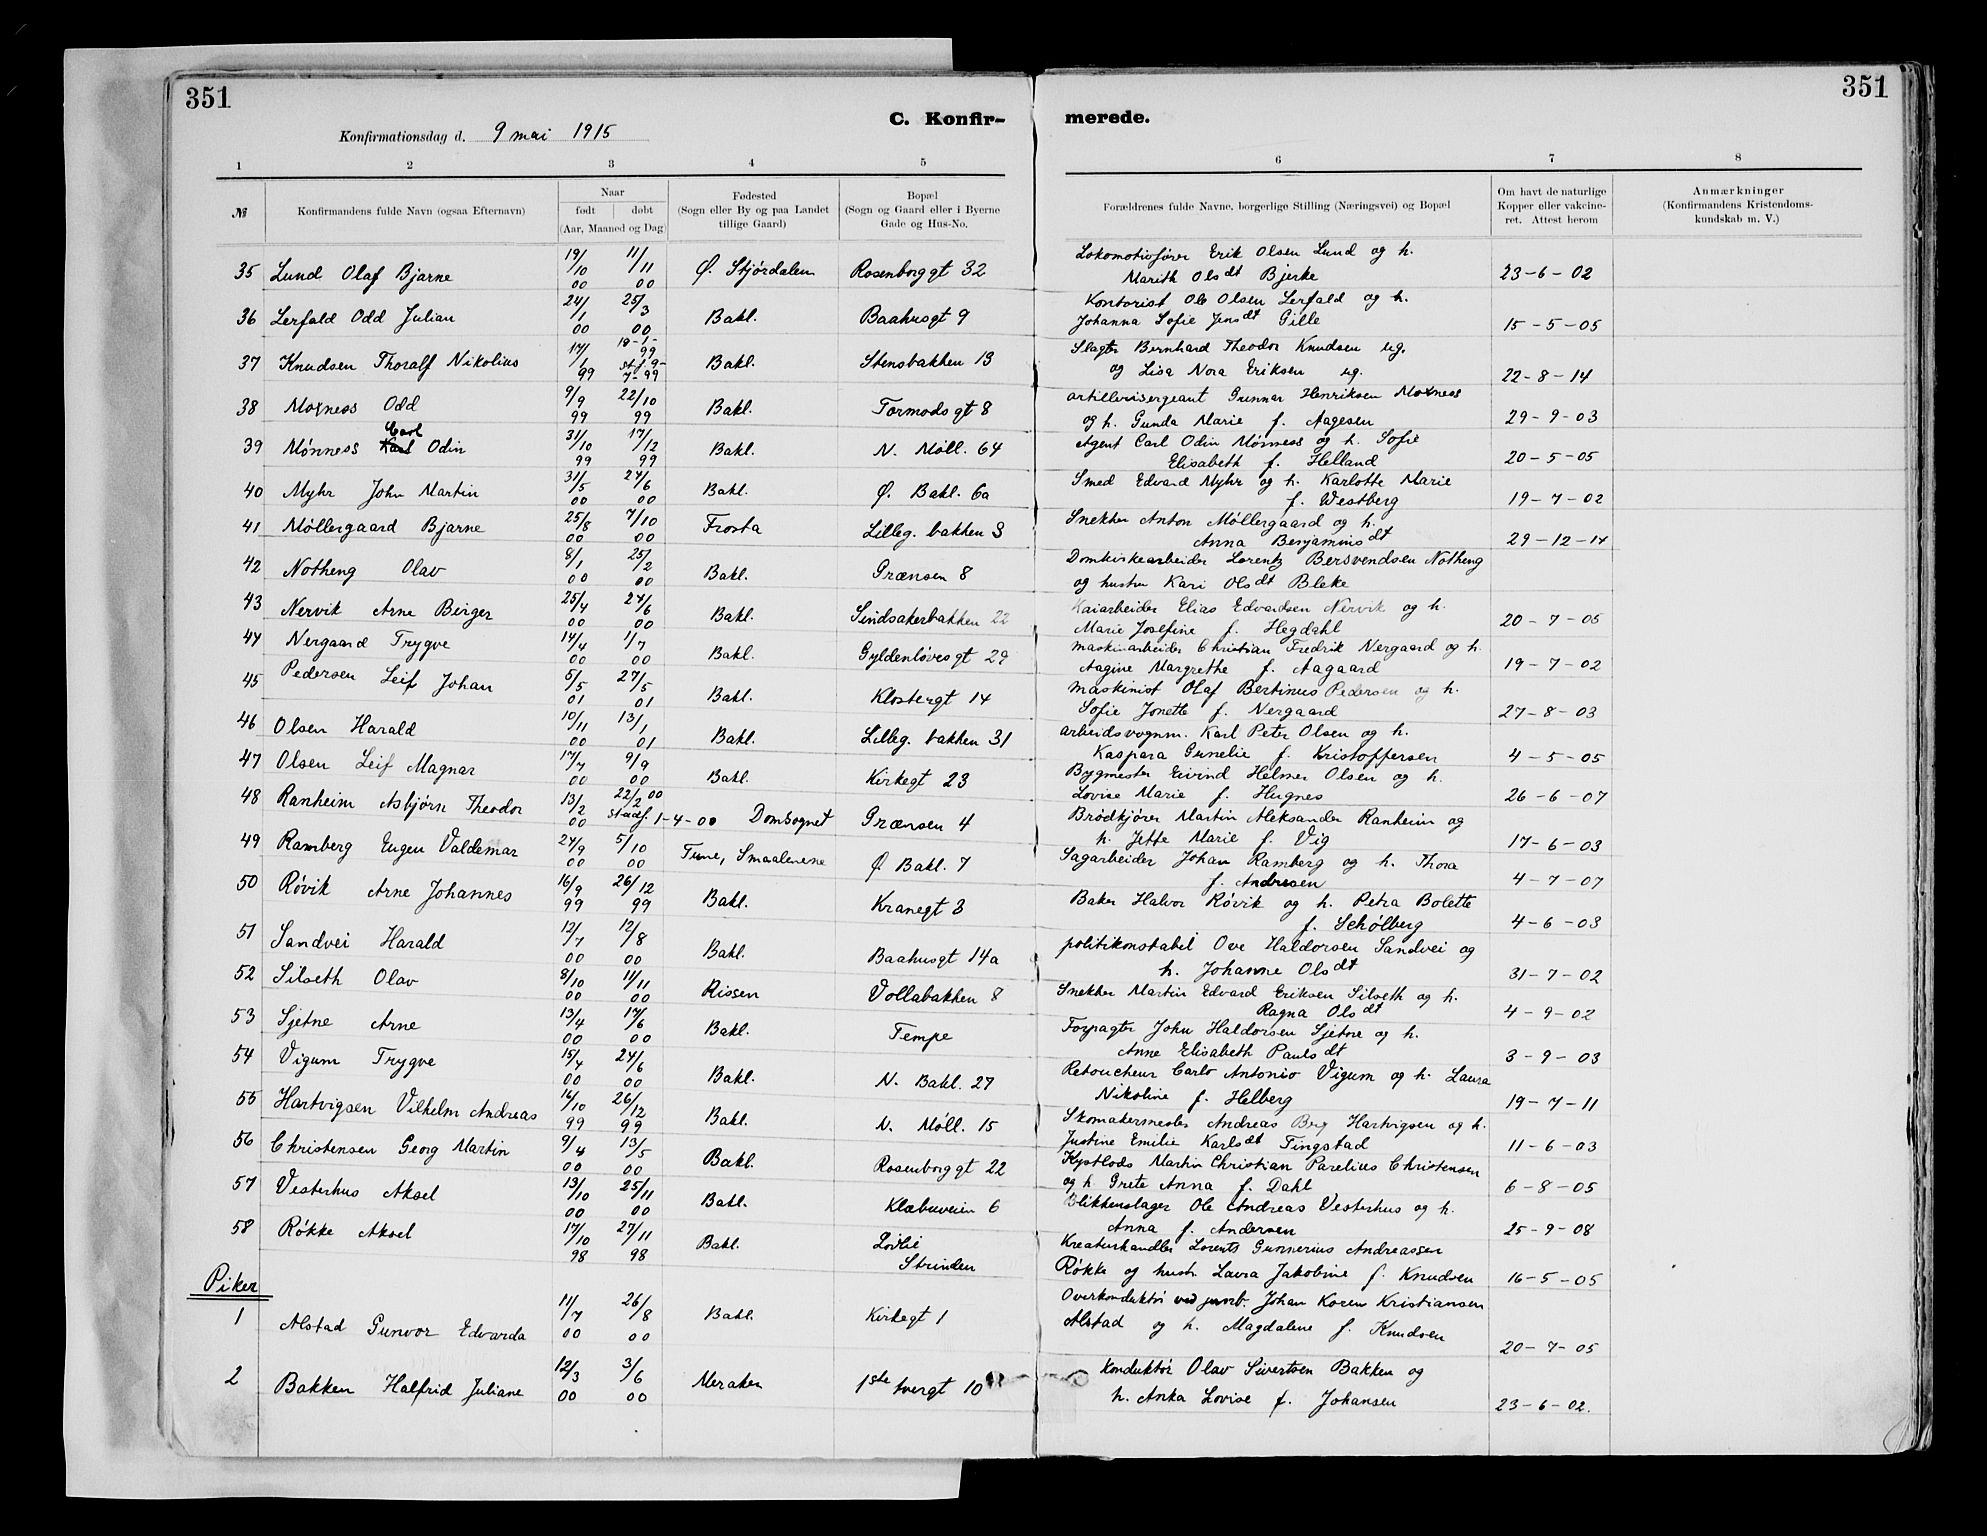 351
351
C. Konfir-
merede.
Konfirmationsdag d. 9 mai 1915
1 2 3 4 5 6 7 8
№ Konfirmandens fulde Navn (ogsaa Efternavn) Naar født døbt (Aar, Maaned og Dag) Fødested (Sogn eller By og paa Landet tillige Gaard) Bopæl (Sogn og Gaard eller i Byerne Gade og Hus-No. Forældrenes fulde Navne, borgerlige Stilling (Næringsvei) og Bopæl Om havt de naturlige Kopper eller vakcineret. Attest herom Anmærkninger (Konfirmandens Kristendomskundskab m. V.)
35 Lund Olaf Bjarne 19/10 00 11/11 00 Ø. Stjørdalen Rosenborggt 32 Lokomotivfører Erik Olsen Lund og h. Marith Olsdt Bjerke 23-6-02
36 Lerfald Odd Julian 24/1 00 25/3 00 Bakl. Baahusgt 9 Kontorist Ole Olsen Lerfald og h. Johanna Sofie Jensdt Gille 15-5-05
37 Knudsen Thoralf Nikolius 17/1 99 18-1-99 st.f. 9-7-99 Bakl. Stensbakken 13 Slagter Bernhard Theodor Knudsen ug. og Lisa Nora Eriksen ug. 22-8-14
38 Moxness Odd 9/9 99 22/10 99 Bakl. Tormodsgt 8 artillerisergeant Gunnar Henriksen Moxness og h. Gunda Marie f. Aagesen 29-9-03
39 Mønness Karl Carl Odin 31/10 99 17/12 99 Bakl. N. Møll. 64 Agent Carl Odin Mønness og h. Sofie Elisabeth f. Helland 20-5-05
40 Myhr John Martin 31/5 00 24/6 00 Bakl. Ø. Bakl. 6a Smed Edvard Myhr og h. Karlotte Marie f. Westberg 19-7-02
41 Møllergaard Bjarne 25/8 00 7/10 00 Frosta Lilleg. bakken 3 Snekker Anton Møllergaard og h. Anna Benjaminsdt 29-12-14
42 Notheng Olav 8/1 00 25/2 00 Bakl. Grænsen 8 Domkirkearbeider Lorentz Bersvendsen Notheng og hustru Kari Olsdt Bleke
43 Nervik Arne Birger 25/4 00 24/6 00 Bakl. Sindsakerbakken 22 Kaiarbeider Elias Edvardsen Nervik og h. Marie Josefine f. Hegdahl 20-7-05
44 Nergaard Trygve 14/4 00 1/7 00 Bakl. Gyldenløvesgt 29 maskinarbeider Christian Fredrik Nergaard og h. Aagine Margrethe f. Aagaard 19-7-02
45 Pedersen Leif Johan 5/5 01 27/5 01 Bakl. Klostergt 14 maskinist Olaf Bertinus Pedersen og h. Sofie Jonette f. Nergaard 27-8-03
46 Olsen Harald 10/11 00 13/1 01 Bakl. Lilleg. bakken 31 arbeidsvognm. Karl Peter Olsen og h. Kaspara Gunelie f. Kristoffersen 4-5-05
47 Olsen Leif Magnar 17/7 00 9/9 00 Bakl. Kirkegt 23 Bygmester Eivind Helmer Olsen og h. Lovise Marie f. Hugnes 26-6-07
48 Ranheim Asbjørn Theodor 13/2 00 22/2 00 stadf. 1-4-00 Domsognet Grænsen 4 Brødkjører Martin Aleksander Ranheim og h. Jette Marie f. Vig 17-6-03
49 Ramberg Eugen Valdemar 24/9 00 5/10 00 Tune, Smaalenene Ø Bakl. 7 Sagarbeider Johan Ramberg og h. Thora f. Andresen 4-7-07
50 Røvik Arne Johannes 16/9 99 26/12 99 Bakl. Kranegt 3 Baker Halvor Røvik og h. Petra Bolette f. Schølberg 4-6-03
51 Sandvei Harald 12/7 00 12/8 00 Bakl. Baahusgt 14a politikonstabel Ove Haldorsen Sandvei og h. Johanne Olsdt 31-7-02
52 Silseth Olav 8/10 00 11/11 00 Rissen Vollabakken 8 Snekker Martin Edvard Eriksen Silseth og h. Ragna Olsdt 4-9-02
53 Sjetne Arne 13/4 00 17/6 00 Bakl. Tempe Forpagter John Haldorsen Sjetne og h. Anne Elisabeth Paulsdt 3-9-03
54 Vigum Trygve 15/4 00 24/6 00 Bakl. N. Bakl. 27 Retoucheur Carlo Antonio Vigum og h. Laura Nikoline f. Helberg 19-7-11
55 Hartvigsen Vilhelm Andreas 16/10 99 26/12 99 Bakl. N. Møll. 15 Skomakermester Andreas Berg Hartvigsen og h. Justine Emilie Karlsdt Tingstad 11-6-03
56 Christensen Georg Martin 9/4 00 13/5 00 Bakl. Rosenborggt 22 Kystlods Martin Christian Parelius Christensen og h Grete Anna f. Dahl 6-8-05
57 Vesterhus Aksel 13/10 00 25/11 00 Bakl. Klæbuveien 6 Blikkenslager Ole Andreas Vesterhus og h. Anna f. Andersen 25-9-08
58 Røkke Aksel 17/10 98 27/11 98 Bakl. Lovlie Strinden Kreaturhandler Lorents Gunnerius Andreassen Røkke og hustr. Laura Jakobine f. Knudsen 16-5-05
Piker
1 Alstad Gunvor Edvarda 11/7 00 26/8 00 Bakl. Kirkegt 1 Overkonduktør ved jernb. Johan Koren Kristiansen Alstad og h. Magdalene f. Knudsen 20-7-05
2 Bakken Halfrid Juliane 12/3 00 3/6 00 Meraker 1ste tvergt 10 Konduktør Olav Sivertsen Bakken og h. Anka Lovise f. Johansen 23-6-02.